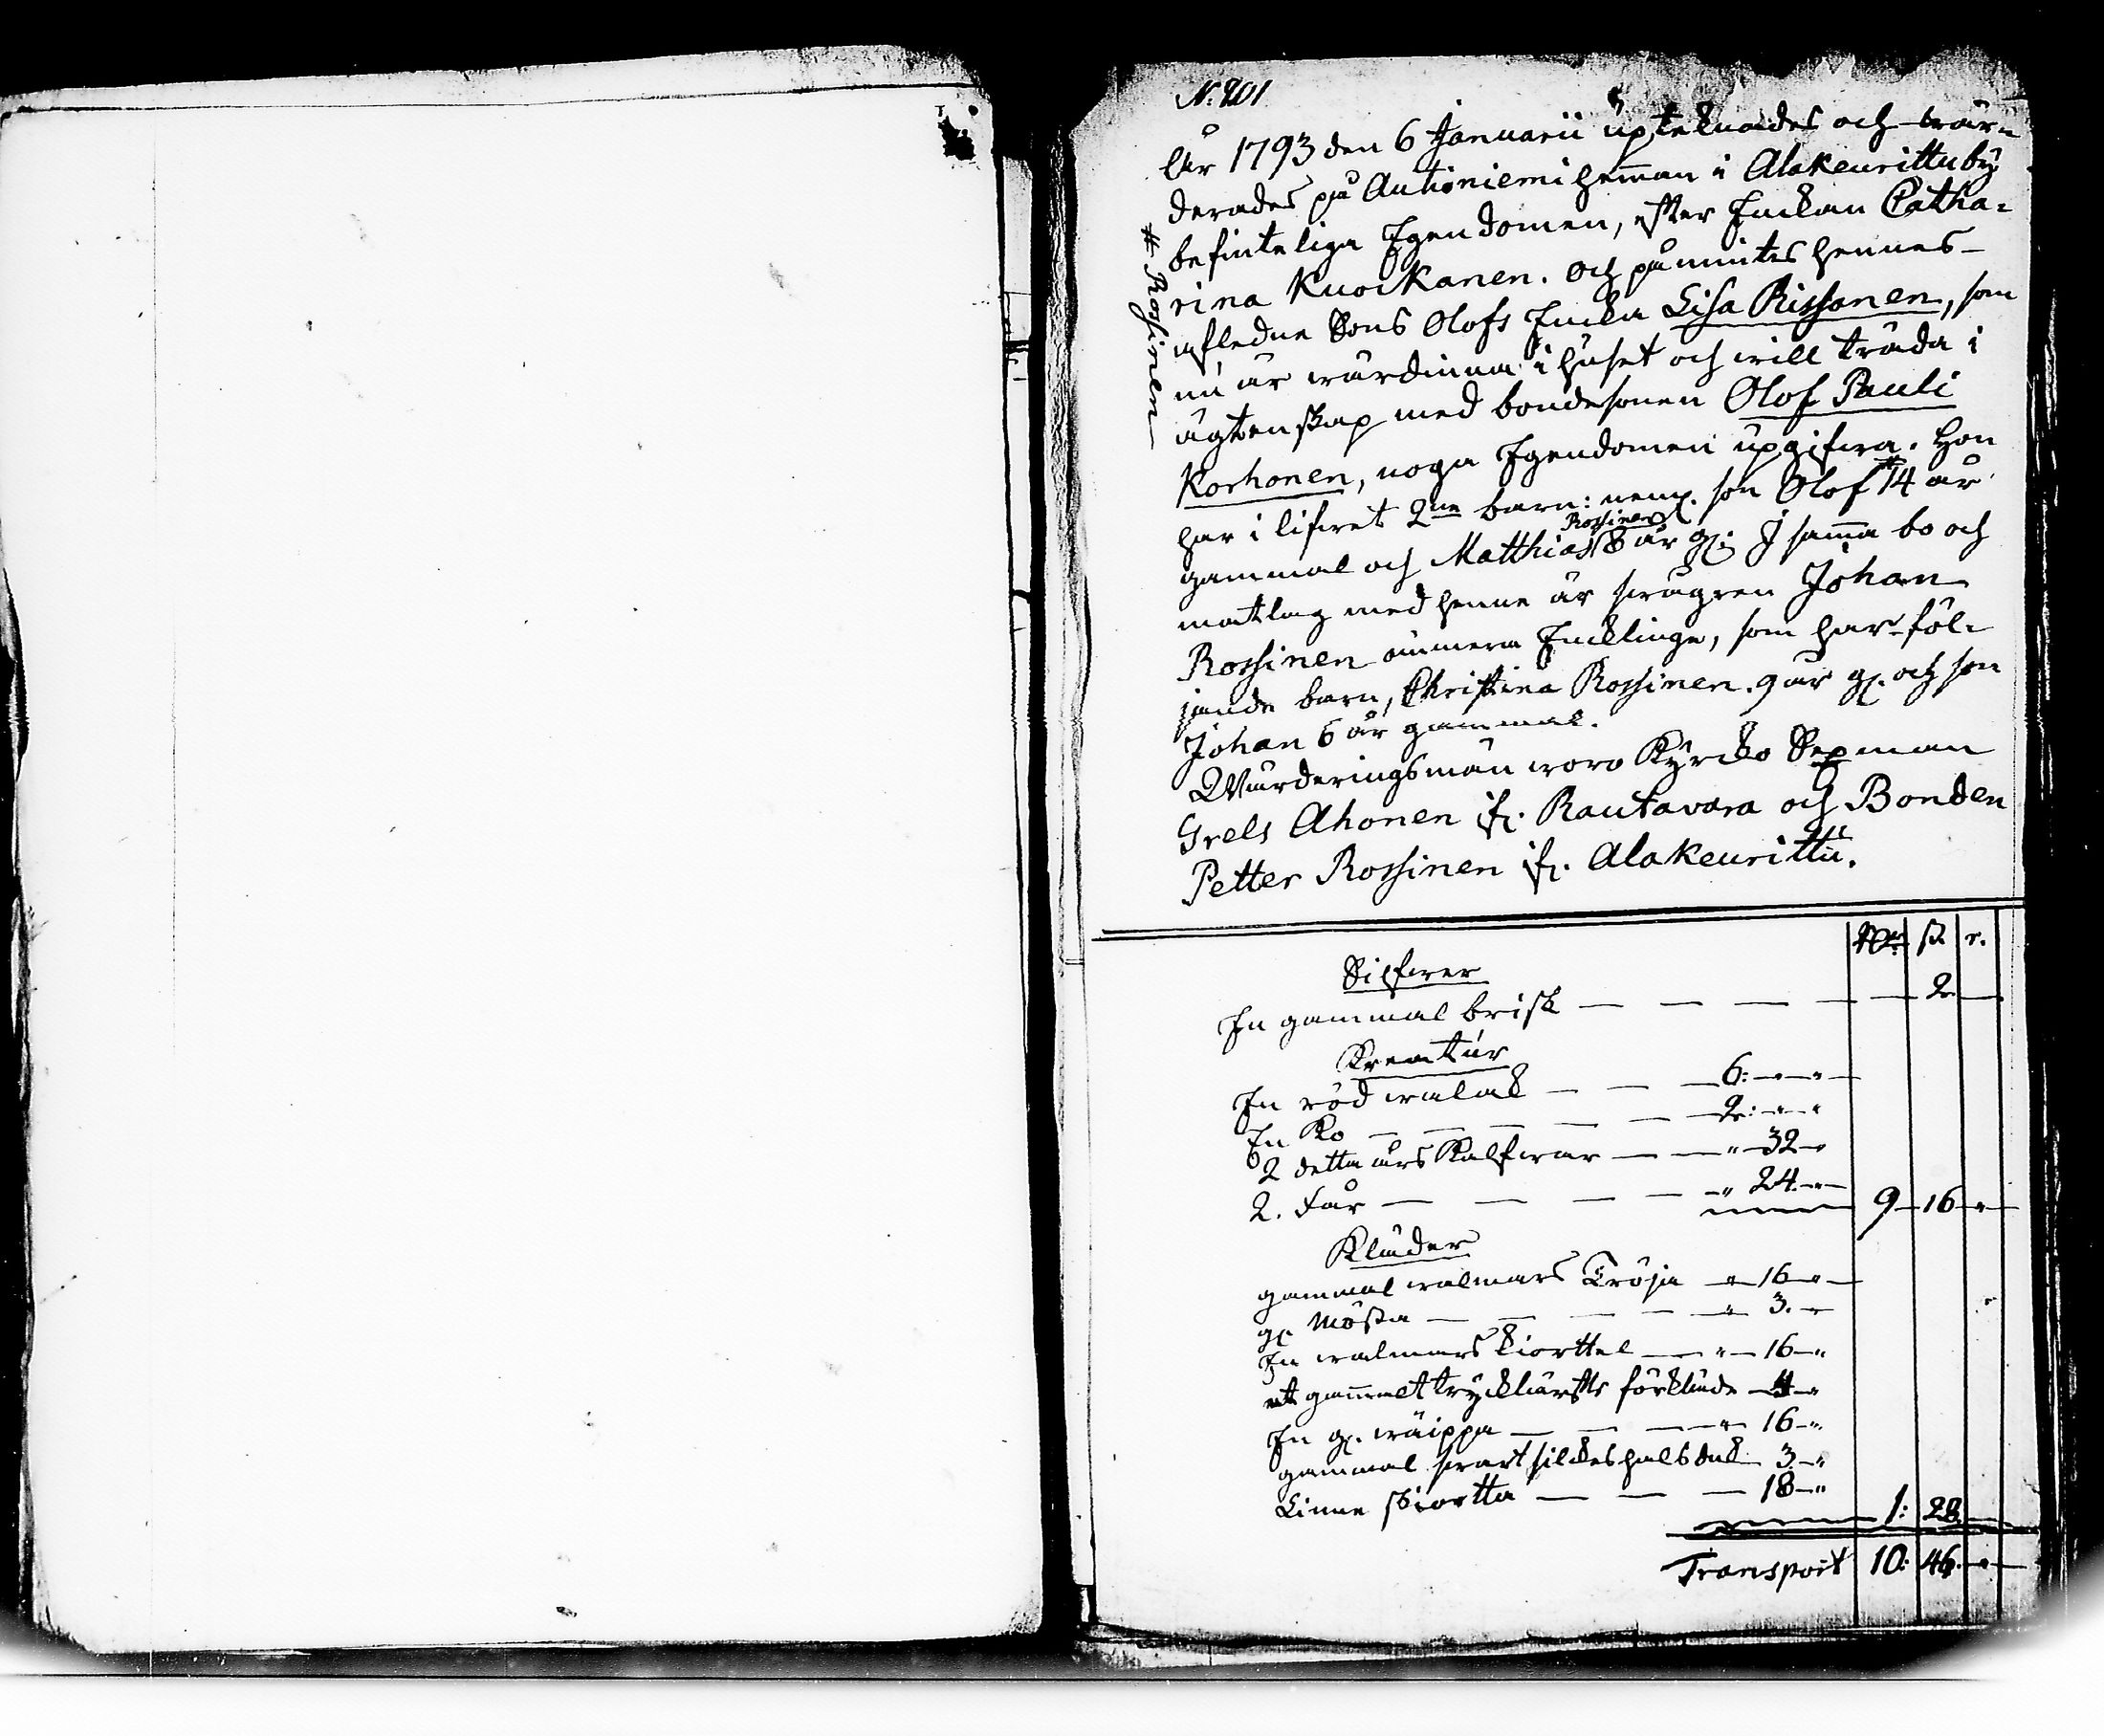 N: 201
År 1793 den 6 Januarii upteknades och wär-
derades på Autioniemi hem̅an i Alakeurittu by
befinteliga Egendomen, efter Enckan Catha-
rina Kuoikanen. Och påmintes hennes
afledne Sons Olofs Encka Lisa Rissanen, som
nu är wärdinna i huset och will träda i
ägtenskap med bondesonen Olof Pauli
Korhonen, noga Egendomen upgifwa. Hon
har i lifwet 2ne barn: neml. son Olof # 14 år
# Rossinen
gammal och Matthias Rossinen 8 år gl: I sam̅a bo och
matlag med henne är swågren Johan
Rossinen numera Encklinge, som har föl-
jande barn, Christina Rossinen 9 år gl. och son
Johan 6 år gammal.
Wärderingsmän woro Kyrcko Sexman
Grels Ahonen if. Rautavara och Bonden
Petter Rossinen if. Alakeurittu.
Rdr sk. r.
Silfwer
En gammal brisk — — — — — 2 —
Kreatur
En röd walak — — — 6: " "
En Ko — — — — — 2: " "
2 detta års Kalfwar — — " 32 "
2. Får — — — — " 24. " 9 16 "
Kläder
gammal walmars Tröja " 16 "
gl. Mössa — — — — " 3. "
En walmars kiorttel — " 16 "
et gam̅alt trycklärfts förkläde 4 "
En gl. wäippa — — — " 16 "
gammal swart silkes halsduk 3 "
Linne skiortta — — — 18 " 1: 28
Transport 10: 46. "